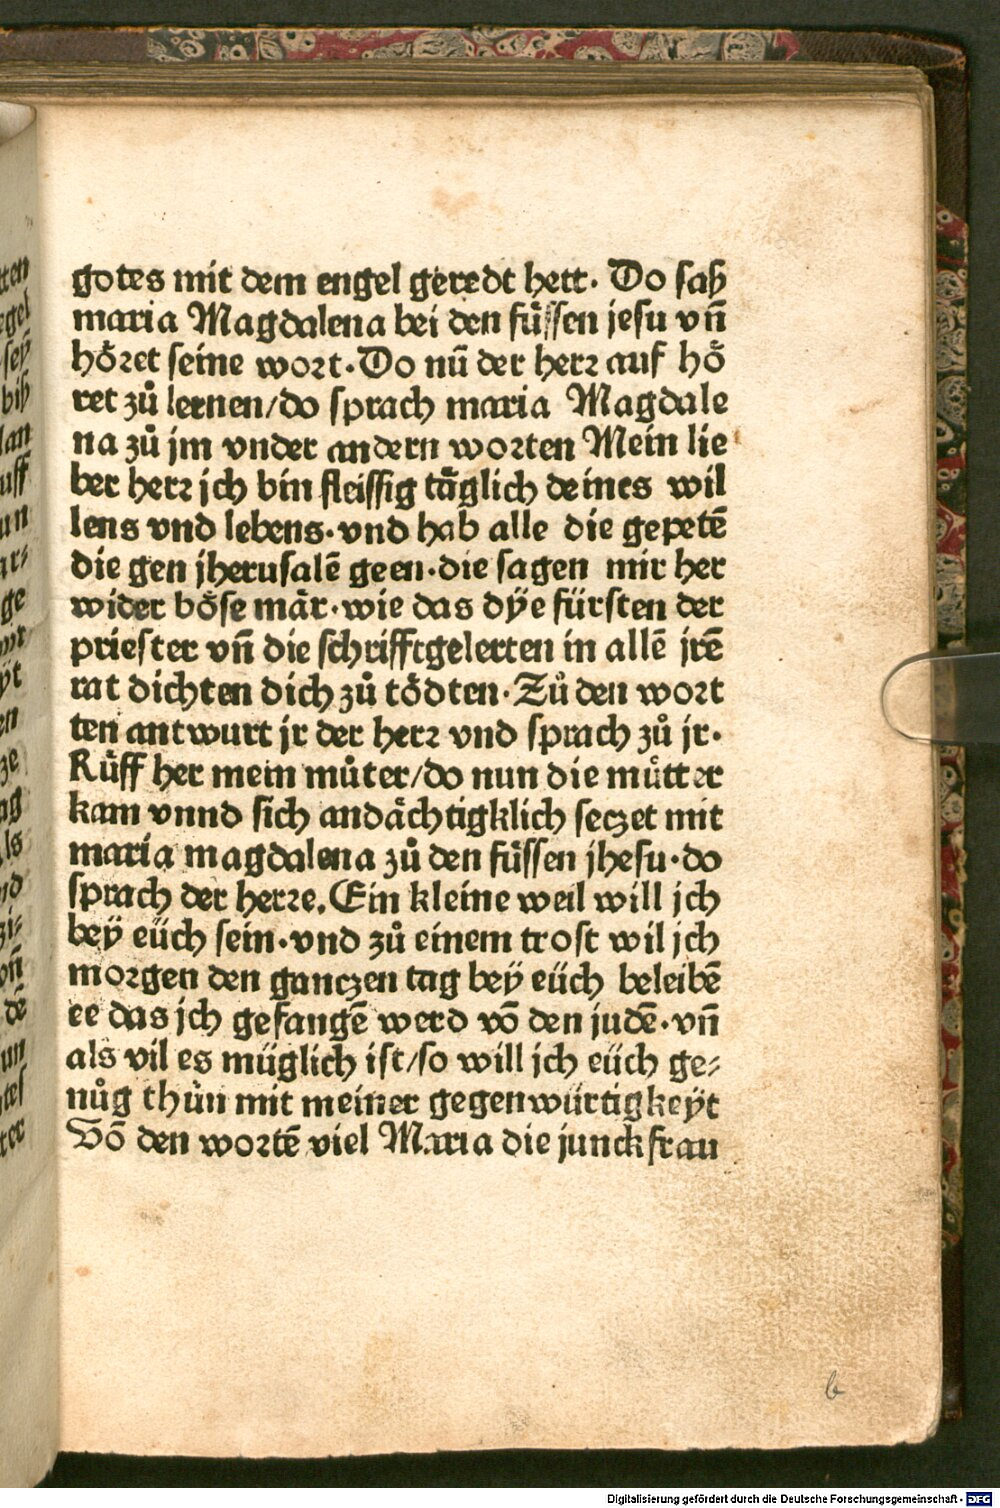 gotes mit dem engel geredt hett. Do saß
maria Magdalena bei den fuͤssen jesu vn̄
hoͤret seine wort. Do nū der herr auf hoͤ
ret zuͦ lernen/do sprach maria Magdale
na zuͦ jm vnder andern worten Mein lie
ber herr jch bin fleissig taͤglich deines wil
lens vnd lebens. vnd hab alle die gepetē
die gen jherusalē geen. die sagen mir her
wider boͤse maͤr. wie das dÿe fürsten der
priester vn̄ die schrifftgelerten in allē jrē
rat dichten dich zuͦ toͤdten. Zuͦ den wort
ten antwurt jr der herr vnd sprach zuͦ jr.
Ruͤff her mein muͦter/do nun die muͤtter
kam vnnd sich andaͤchtigklich seczet mit
maria magdalena zuͦ den fuͤssen jhesu. do
sprach der herre. Ein kleine weil will jch
beÿ eüch sein. vnd zuͦ einem trost wil jch
morgen den ganczen tag beÿ eüch beleibē
ee das jch gefangē werd vō den judē. vn̄
als vil es müglich ist/so will jch eüch ge⸗
nuͦg thuͦn mit meiner gegenwürtigkeÿt
Vō den wortē viel Maria die junckfrau
b
Digitalisierung gefördert durch die Deutsche Forschungsgemeinschaft - DFG